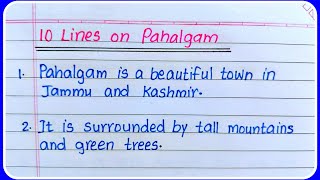 10 Lines on Pahalgam
1. Pahalgam is a beautiful town in
Jammu and Kashmir.
2. It is surrounded by tall mountains
and green trees.